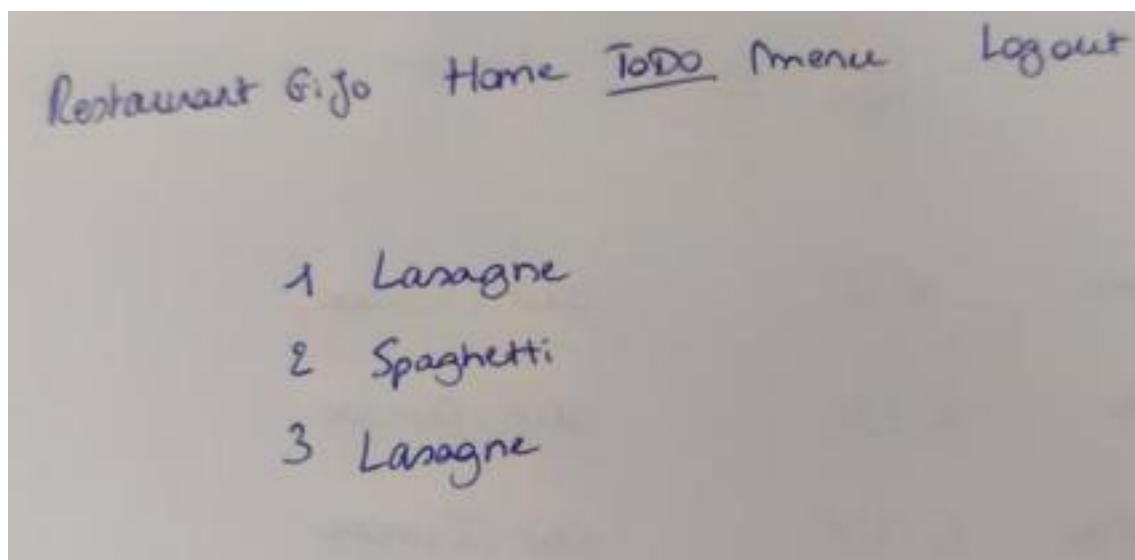 Restaurant GiJo Home ToDo Menu Logout
1 Lasagne
2 Spaghetti
3 Lasagne